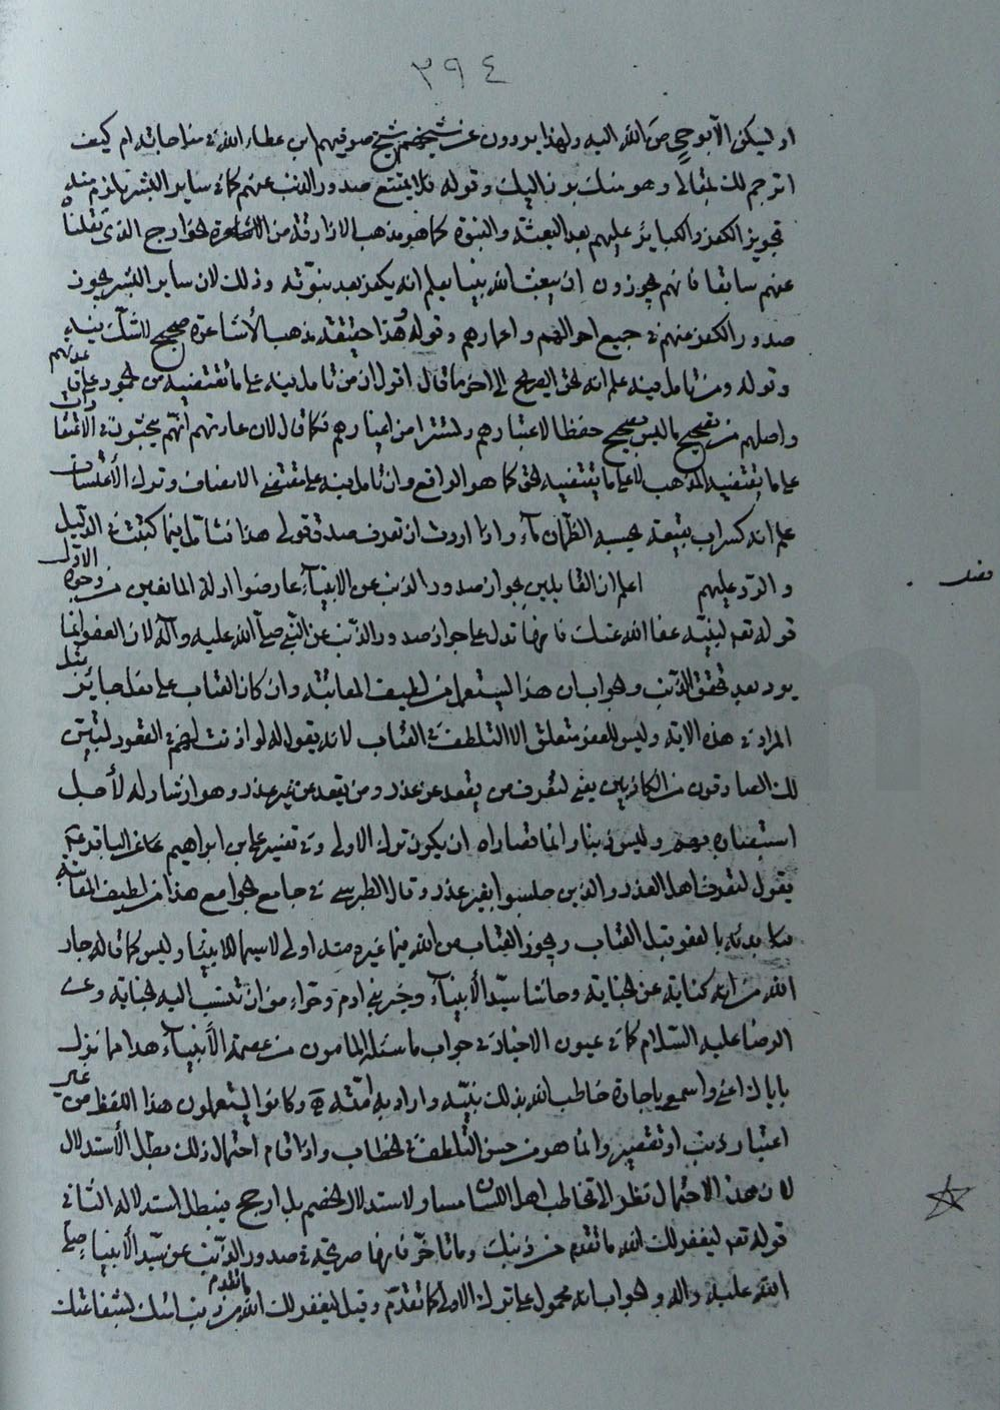 ٣٩٤
او ليكن الا بوحي من الله اليه ولهذا يروون عن شيخهم شيخ صوفيهم ابن عطاء الله في مناجاته ام كيف
اترجم لك بمقالي وهو منك برز اليك وقوله فلا يمتنع صدور الذنب عنهم كما في ساير البشر يلزم منه
تجويز الكفر والكباير عليهم بعد البعثة والنبوة كما هو مذهب الازارقة من الخوارج الذي نقلنا
عنهم سابقا فانهم يجوزون ان يبعث الله نبيا يعلم انه يكفر بعد نبوته وذلك لان ساير البشر يجوز
صدور الكفر عنهم في جميع احوالهم واعمارهم وقوله هذا حقيقة مذهب الأشاعرة صحيح لا شك فيه
وقوله ومن تأمل فيه علم انه الحق الصريح الى اخر ما قال اقول ان من تأمل فيه على ما تقتضيه من الجمود على قاعدتهم
واصلهم من تصحيح ما ليس بصحيح حفظا لاعتبارهم وتسترا من اغيارهم فكما قال لان عادتهم انهم يبحثون في الاعتقادات
على ما يقتضيه المذهب لا على ما يقتضيه الحق كما هو الواقع وان تأمل فيه على مقتضى الانصاف وترك الأعتساف
علم انه كسراب بقيعة يحسبه الظمآن ماء واذا اردت ان تعرف صدق قولي هذا فتأمل فيما كتبت في الدليل
والرد عليهم اعلم ان القايلين بجواز صدور الذنب عن الانبيآء عارضوا ادلة المانعين من وجوه الاول
قوله تعم لنبيه عفا الله عنك فانها تدل على جواز صدور الذنب عن النبي صلى الله عليه وآله لان العفو انما
يرد بعد تحقق الذنب والجواب ان هذا يستعمل في لطيف المعاتبة وان كان العتاب على فعل جايز قبل
المراد في هذه الاية وليس للعفو متعلق الا التلطف في العتاب لانه يقول له لو اذنت لهم في القعود ليتبين
لك الصادقون من الكاذبين يعني لتعرف من يقعد عن عذر ومن يقعد عن غير عذر وهو ارشاد له لأجل
استبصاره بهم وليس ذنبا وانما قصاراه ان يكون ترك الاولى وفي تفسير علي بن ابراهيم عن الباقر ع
يقول لتعرف اهل العذر والذين جلسوا بغير عذر وقال الطبرسي في جامع الجوامع هذا من لطيف المعاتبة
بدأه بالعفو قبل العتاب ويجوز العتاب من الله فيما غيره منه اولى لاسيما للانبيا وليس كما قاله جار
الله من انه كناية عن الجناية وحاشا سيد الأنبيآء وخير بني ادم وحواء من ان تنسب اليه الجناية وعن
الرضا عليه السلام كما في عيون الاخبار في جواب ما سئله المامون من عصمة الأنبيآء هذا مما نزل
باياك اعني واسمعي يا جارة خاطب الله بذلك نبيه واراد به امته وكانوا يستعملون هذا اللفظ من غير
اعتبار ذنب او تقصير وانما هو من حسن التلطف في الخطاب واذا قام احتمال ذلك بطل الأستدلال
لان هذا الاحتمال نظرا الى تخاطب اهل اللسان مساو لاستدلال الخصم بل ارجح فيبطل استدلاله الثاني
قوله تعم ليغفر لك الله ما تقدم من ذنبك وما تأخر فانها صريحة في صدور الذنب عن سيد الأنبياء صلى
الله عليه واله والجواب انه محمول على ترك الاولى كما تقدم وقيل ليغفر لك الله ما تقدم من ذنب امتك بشفاعتك